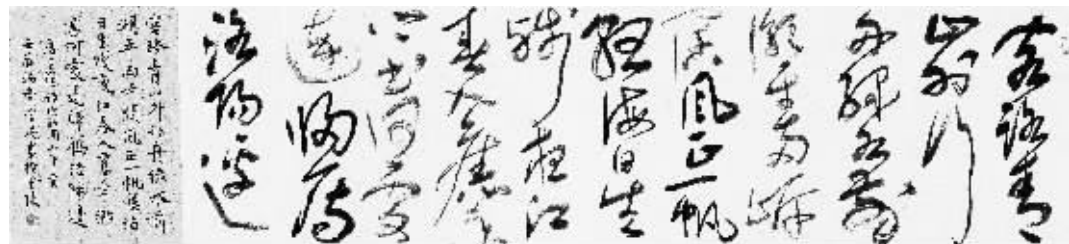 客路青
山外行
舟綠水前
潮平兩岸
闊風正一帆
懸海日生
殘夜江
春入舊年
鄉書何處
達歸雁
洛陽邊
客路青山外行舟綠水前
潮平兩岸闊風正一帆懸海
日生殘夜江春入舊年鄉
書何處達歸雁洛陽邊